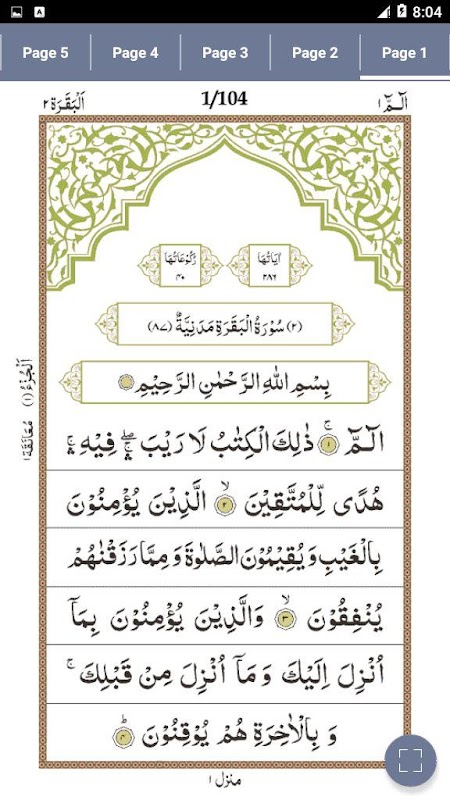 8:04
Page 5 Page 4 Page 3 Page 2 Page 1
الٓـمّٓ ١ 1/104 اَلْبَقَرَة ٢
اٰيَاتُهَا ٢٨٦ رُكُوْعَاتُهَا ٤٠
(٢) سُوْرَةُ الْبَقَرَةِ مَدَنِيَّةٌ (٨٧)
بِسْمِ اللهِ الرَّحْمٰنِ الرَّحِيْمِ
الٓـمّٓ ۚ ١ ذٰلِكَ الْكِتٰبُ لَا رَيْبَ ۛ ۖ فِيْهِ ۛ
هُدًى لِّلْمُتَّقِيْنَ ۙ ٢ الَّذِيْنَ يُؤْمِنُوْنَ
بِالْغَيْبِ وَيُقِيْمُوْنَ الصَّلٰوةَ وَمِمَّا رَزَقْنٰهُمْ
يُنْفِقُوْنَ ۙ ٣ وَالَّذِيْنَ يُؤْمِنُوْنَ بِمَآ
اُنْزِلَ اِلَيْكَ وَمَآ اُنْزِلَ مِنْ قَبْلِكَ ۚ
وَ بِالْاٰخِرَةِ هُمْ يُوْقِنُوْنَ ؕ ٤
اَلْجُزْءُ (١) مُعَانَقَة ١
منزل ١